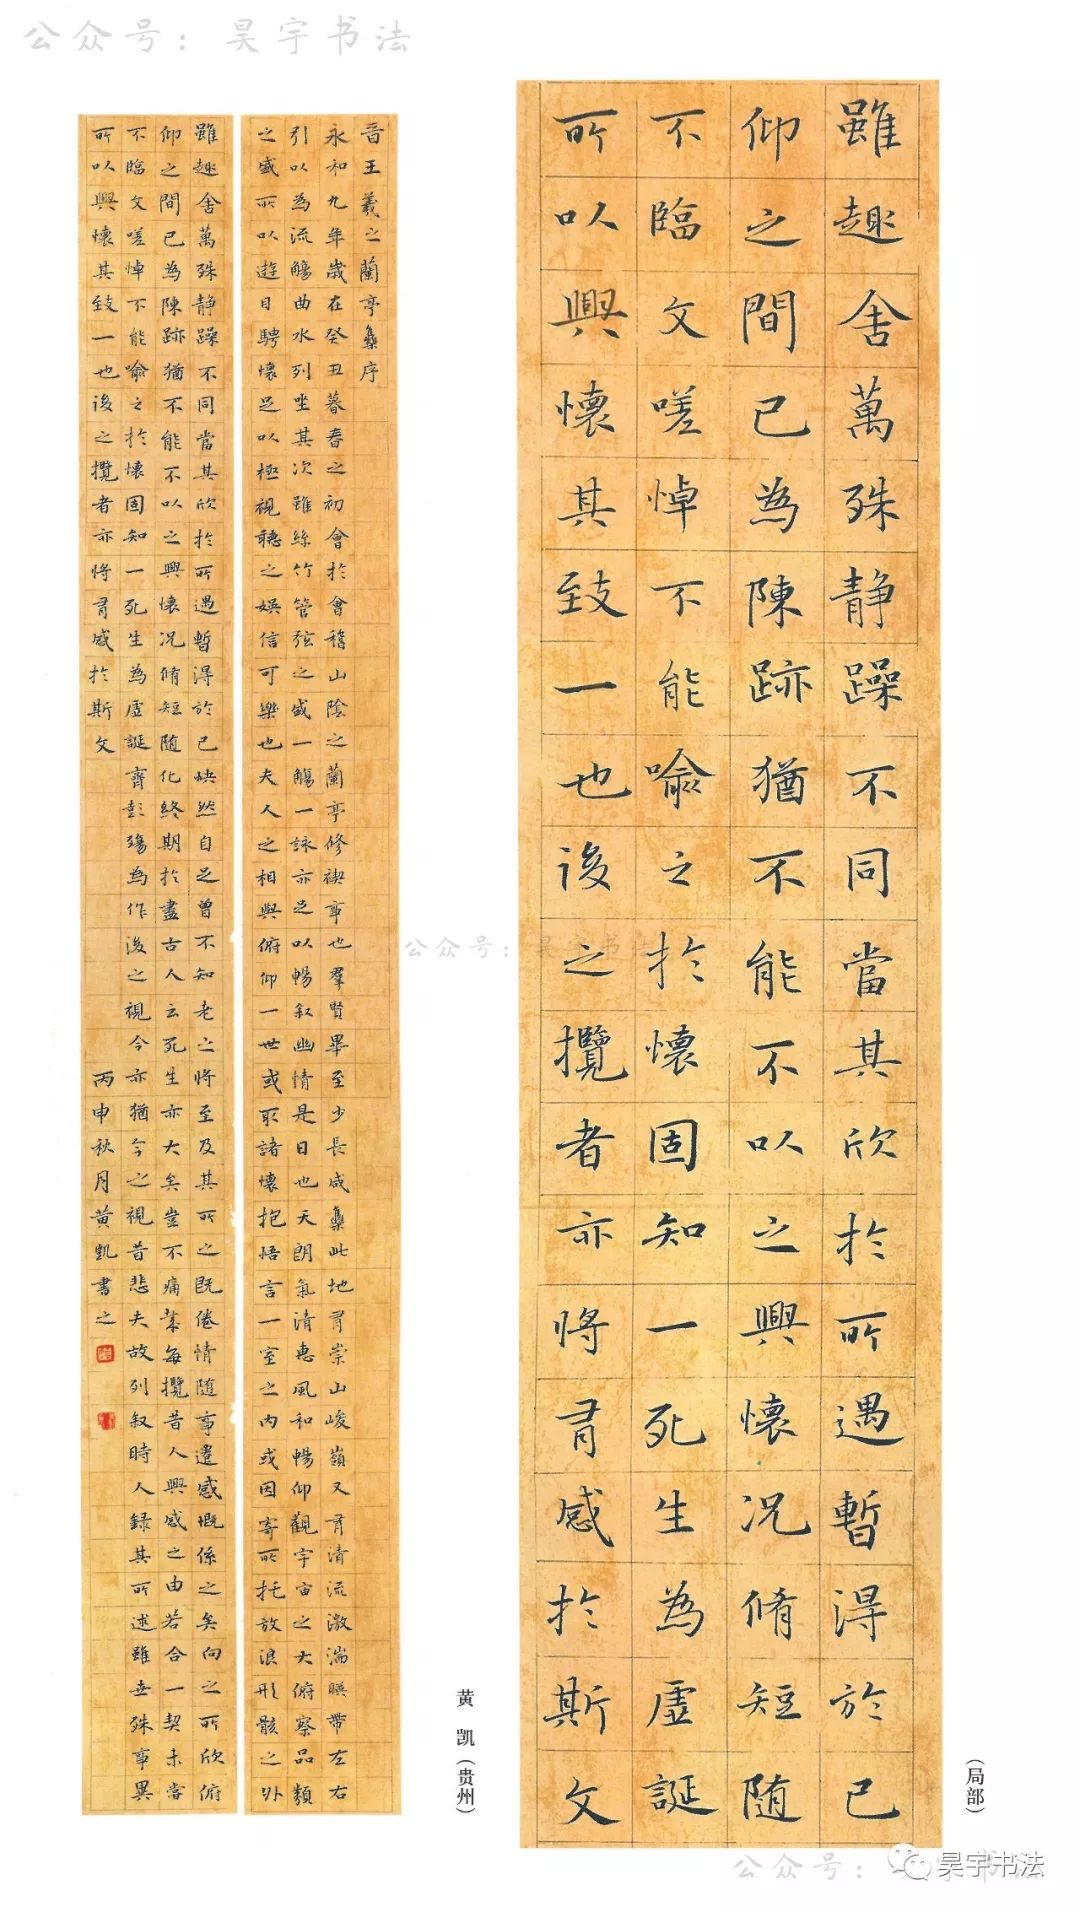 公众号：昊宇书法
晉王羲之蘭亭集序
永和九年歲在癸丑暮春之初會於會稽山陰之蘭亭修禊事也羣賢畢至少長咸集此地有崇山峻嶺又有清流激湍暎帶左右
引以為流觴曲水列坐其次雖絲竹管弦之盛一觴一詠亦足以暢叙幽情是日也天朗氣清惠風和暢仰觀宇宙之大俯察品類
之盛所以遊目騁懷足以極視聽之娛信可樂也夫人之相與俯仰一世或取諸懷抱悟言一室之内或因寄所托放浪形骸之外
雖趣舍萬殊静躁不同當其欣於所遇暫得於己怏然自足曾不知老之将至及其所之既倦情随事遷感慨係之矣向之所欣俯
仰之間已為陳跡猶不能不以之興懷况脩短随化終期於盡古人云死生亦大矣豈不痛哉每攬昔人興感之由若合一契未嘗
不臨文嗟悼不能喻之於懷固知一死生為虚誕齊彭殤為作後之視今亦猶今之視昔悲夫故列叙時人録其所述雖世殊事異
所以興懷其致一也後之攬者亦将有感於斯文
丙申秋月黄凱書之
黄 凯（贵州）
雖趣舍萬殊静躁不同當其欣於所遇暫得於己
仰之間已為陳跡猶不能不以之興懷况脩短随
不臨文嗟悼不能喻之於懷固知一死生為虚誕
所以興懷其致一也後之攬者亦将有感於斯文
（局部）
公众号：昊宇书法
公众号：
昊宇书法